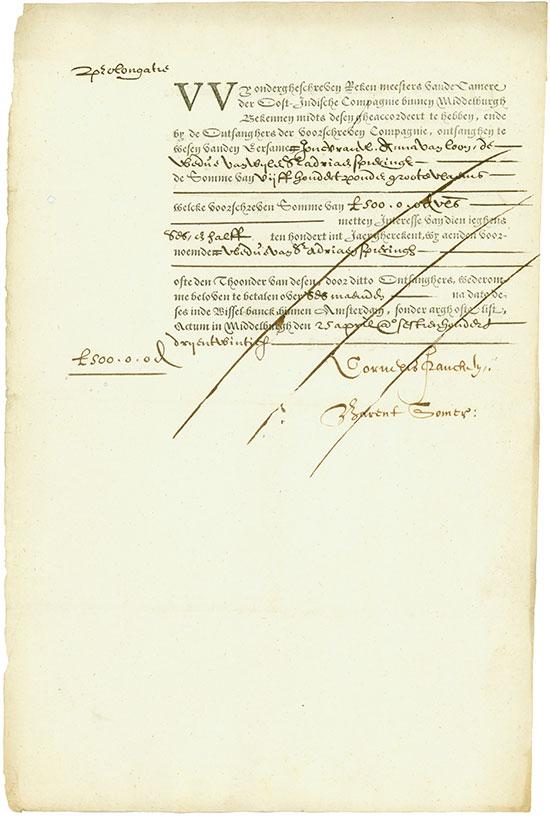 Prolongatie
WY ondergheschreven Reken meesters vande Camere
der Oost-Indische Compagnie binnen Middelburgh
Bekennen midts desen gheaccordeert te hebben, ende
by de Ontfanghers der voorschreven Compagnie, ontfanghen te
wesen vanden Eersame Joncvrauw Anna van loon, de
wedue van wylen Sr adriaen spieringh
de Somme van vijff hondert ponden groote vlaems
welcke voorschreven Somme van £500.0.0 d vls
metten Interesse van dien jeghens
ses, en halff ten hondert int Jaer gherekent, wy aenden voor-
noemde wedue van Sr adriaen spieringh
ofte den Thoonder van desen, door ditto Ontfanghers, wederom-
me beloven te betalen over ses maenden na dato de-
ses inde Wissel-banck binnen Amsterdam, sonder argh ofte list,
Actum in Middelburgh den 25 april a° sesthien hondert
drijentwintich
£500.0.0 d
Cornelis
Barent Somer: